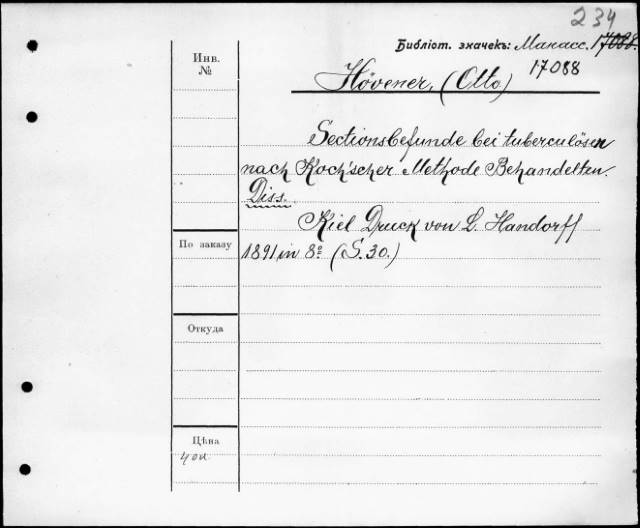 234
Библіот. значекъ: Манасс. 17088.
Инв. №
17088
Hövener, (Otto)
Sectionsbefunde bei tuberculösen
nach Koch'scher Methode Behandelten.
Diss.
Kiel Druck von L. Handorff
По заказу
1891 in 8º (S. 30.)
Откуда
Цѣна